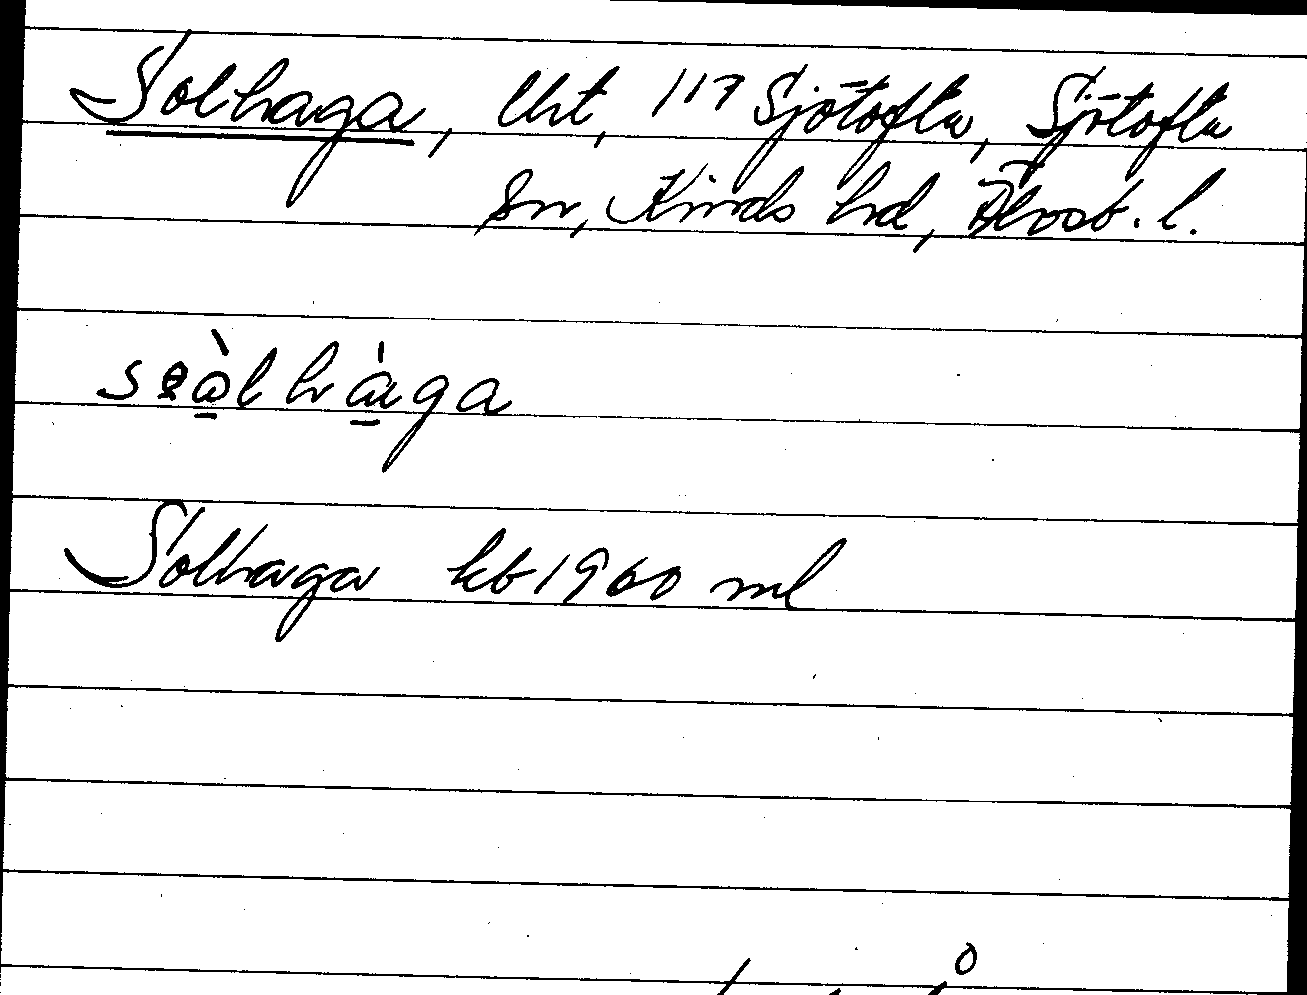 Solhaga, lht, 117 Sjötofta, Sjötofta
sn, Kinds hd, Älvsb. l.
Solhaga kb 1960 ml